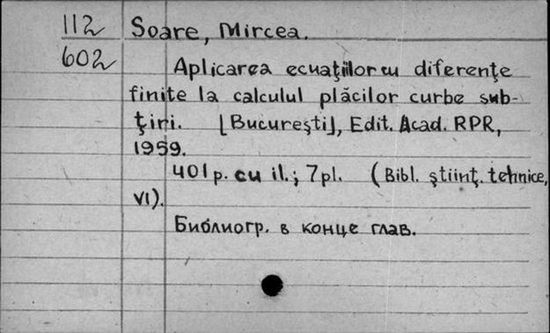 112
602
Soare, Mircea.
Aplicarea ecuaţiilor cu diferenţe
finite la calculul plăcilor curbe sub-
ţiri. [Bucureşti], Edit. Acad. RPR,
1959.
401 p. cu il.; 7 pl. (Bibl. ştiinţ. tehnice,
VI).
Библиогр. в конце глав.